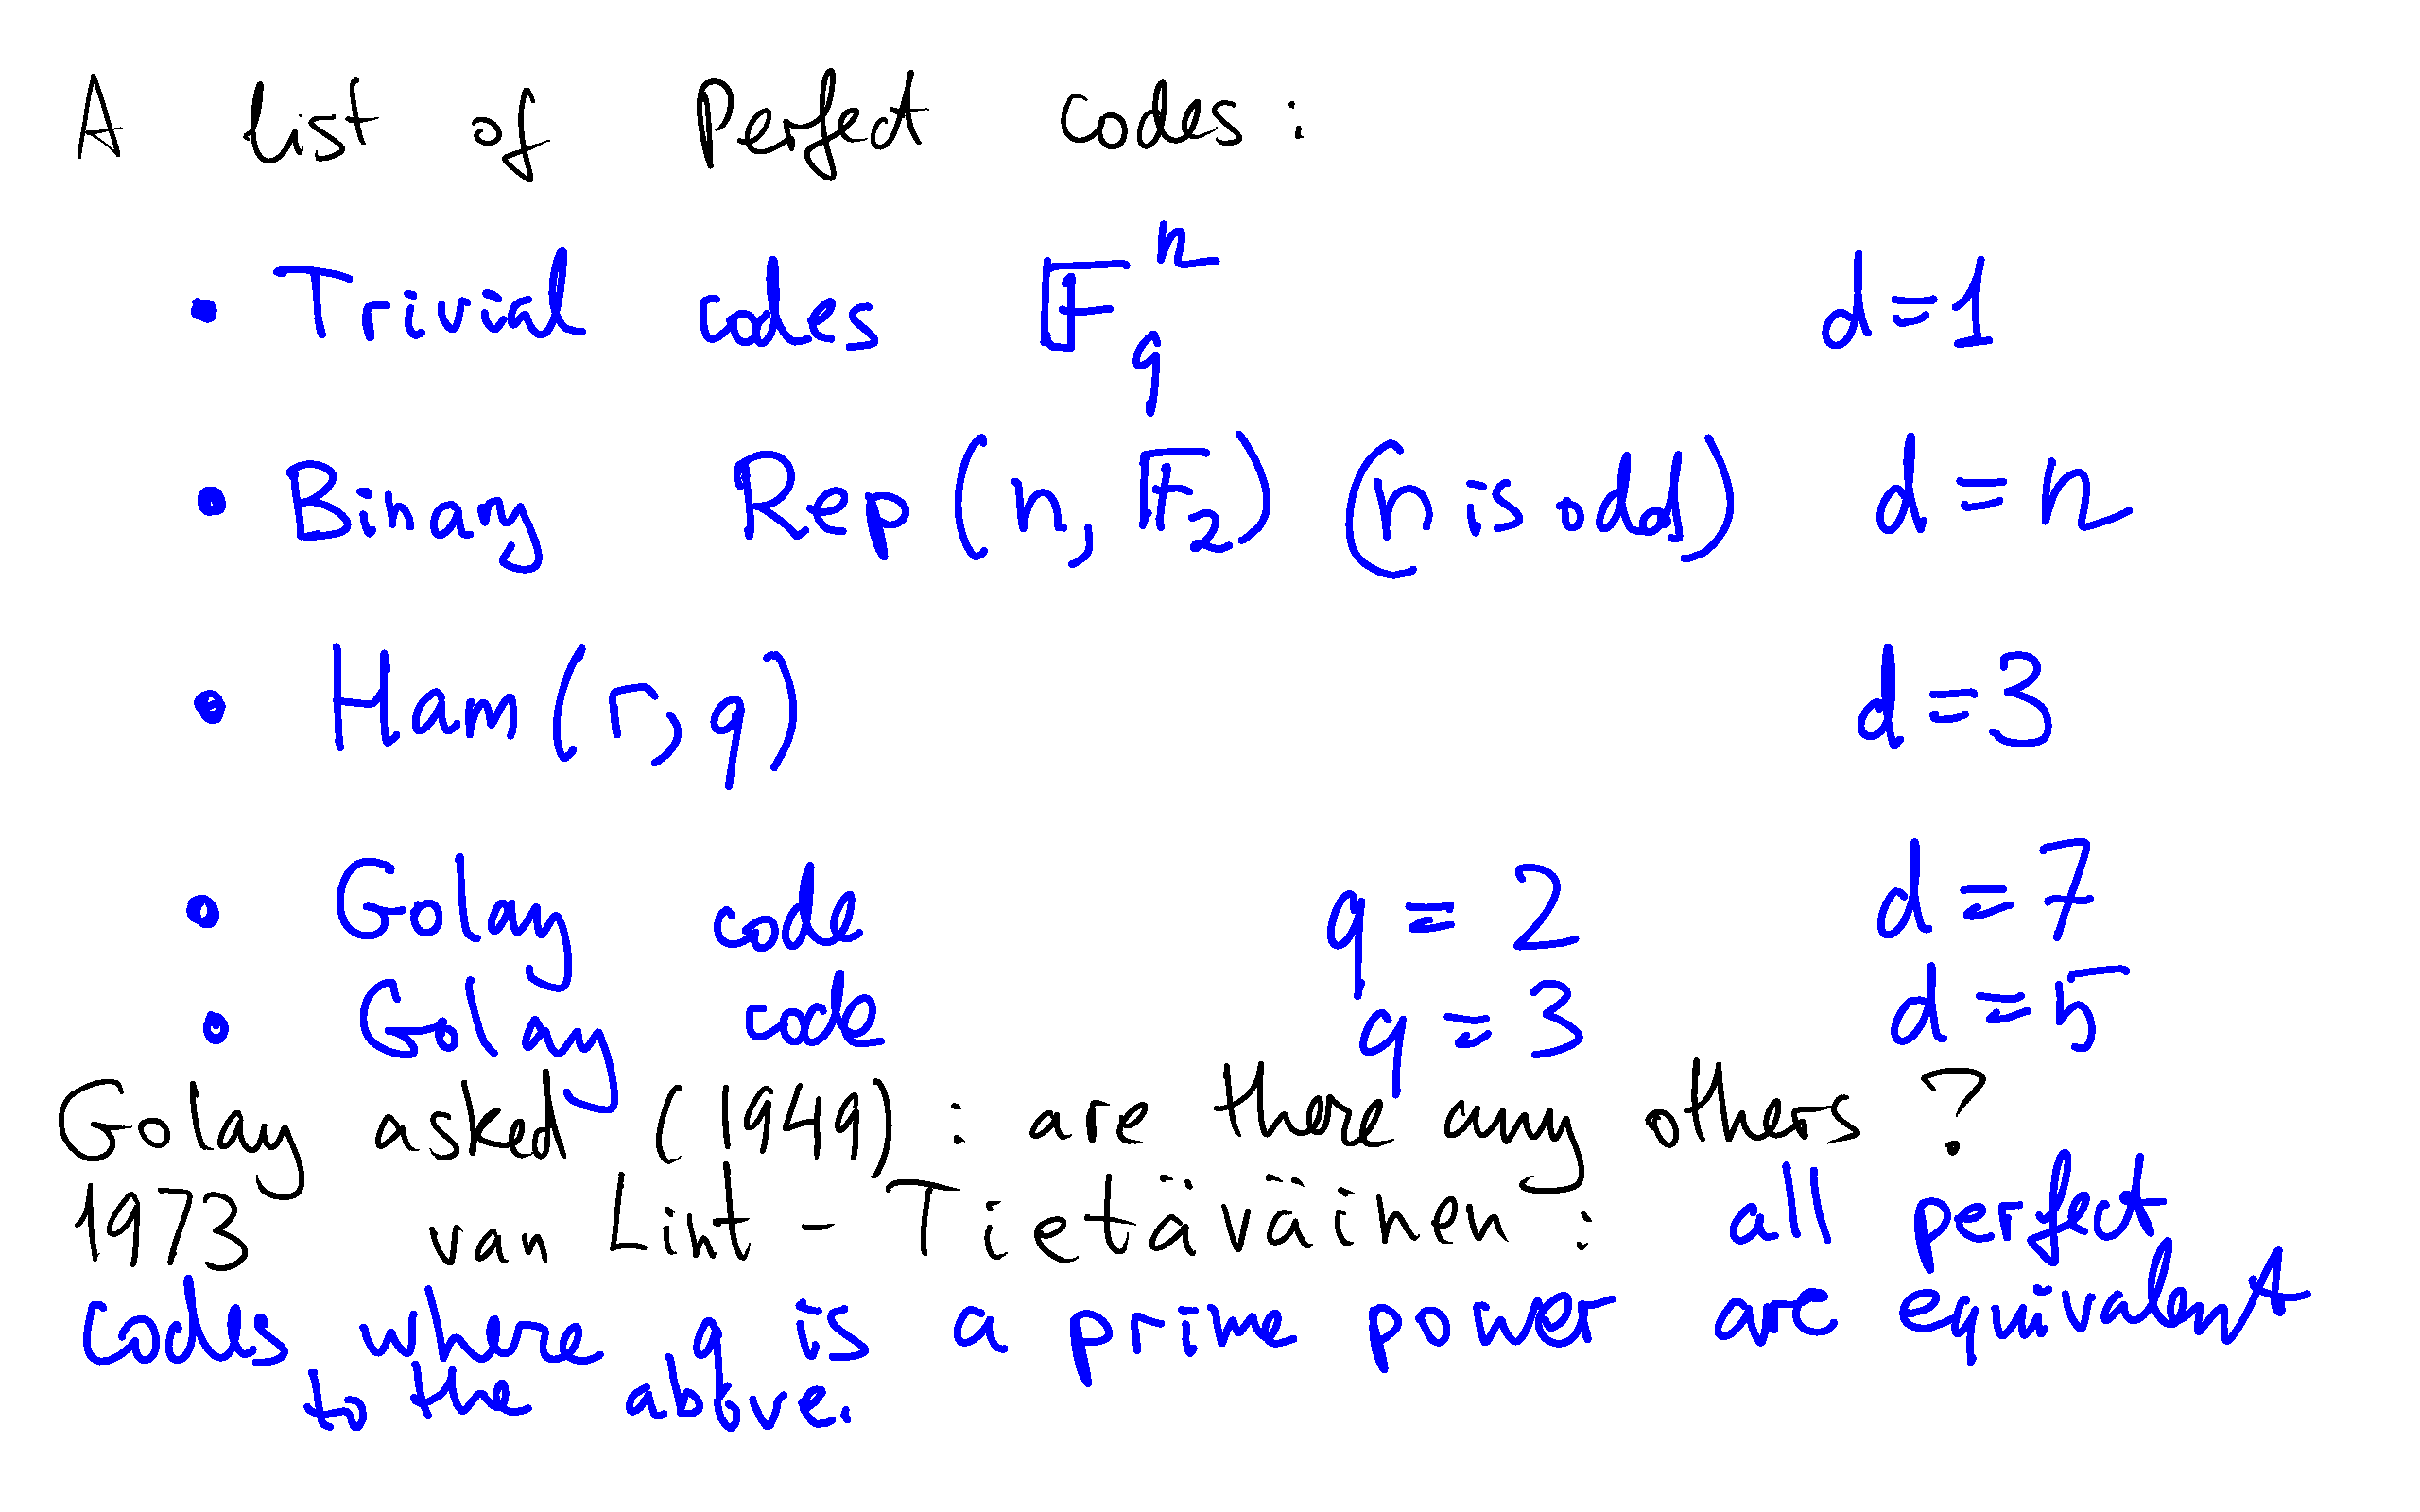 A list of Perfect codes:
• Trivial codes 𝔽_q^n d=1
• Binary Rep(n, 𝔽_2) (n is odd) d=n
• Ham(r,q) d=3
• Golay code q=2 d=7
• Golay code q=3 d=5
Golay asked (1949): are there any others?
1973 van Lint - Tietäväinen: all perfect
codes where q is a prime power are equivalent
to the above.